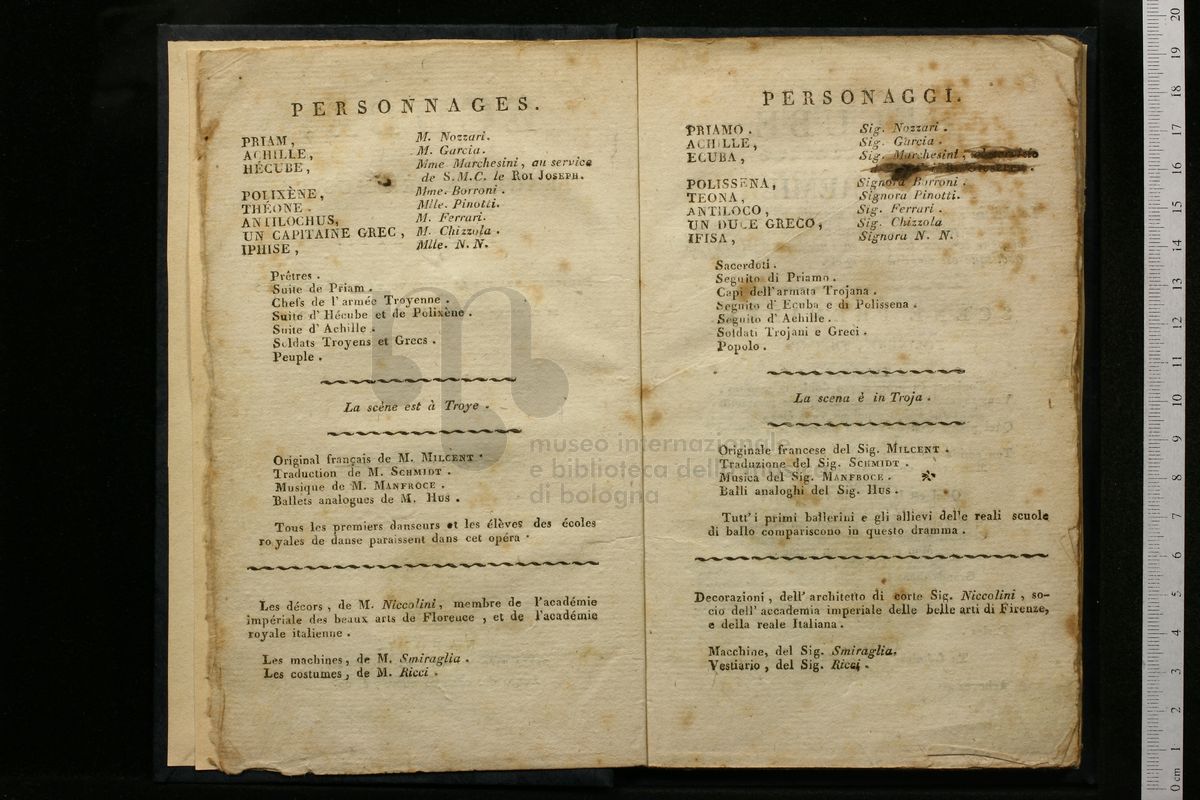 PERSONNAGES.
PRIAM, M. Nozzari.
ACHILLE, M. Garcia.
HÉCUBE, Mme Marchesini, au service
de S.M.C. le ROI JOSEPH.
POLIXÈNE, Mme. Borroni.
THÉONE, Mlle. Pinotti.
ANTILOCHUS, M. Ferrari.
UN CAPITAINE GREC, M. Chizzola.
IPHISE, Mlle. N. N.
Prêtres.
Suite de Priam.
Chefs de l'armée Troyenne.
Suite d'Hécube et de Polixène.
Suite d'Achille.
Soldats Troyens et Grecs.
Peuple.
La scène est à Troye.
Original français de M. MILCENT.
Traduction de M. SCHMIDT.
Musique de M. MANFROCE.
Ballets analogues de M. HUS.
Tous les premiers danseurs et les élèves des écoles
royales de danse paraissent dans cet opéra.
Les décors, de M. Niccolini, membre de l'académie
impériale des beaux arts de Florence, et de l'académie
royale italienne.
Les machines, de M. Smiraglia.
Les costumes, de M. Ricci.
PERSONAGGI.
PRIAMO. Sig. Nozzari.
ACHILLE, Sig. Garcia.
ECUBA, Sig. Marchesini,
POLISSENA, Signora Borroni.
TEONA, Signora Pinotti.
ANTILOCO, Sig. Ferrari.
UN DUCE GRECO, Sig. Chizzola
IFISA, Signora N. N.
Sacerdoti.
Seguito di Priamo.
Capi dell'armata Trojana.
Seguito d'Ecuba e di Polissena.
Seguito d'Achille.
Soldati Trojani e Greci.
Popolo.
La scena è in Troja.
Originale francese del Sig. MILCENT.
Traduzione del Sig. SCHMIDT.
Musica del Sig. MANFROCE.
Balli analoghi del Sig. HUS.
Tutt'i primi ballerini e gli allievi delle reali scuole
di ballo compariscono in questo dramma.
Decorazioni, dell'architetto di corte Sig. Niccolini, so-
cio dell'accademia imperiale delle belle arti di Firenze,
e della reale Italiana.
Macchine, del Sig. Smiraglia.
Vestiario, del Sig. Ricci.
museo internazionale
e biblioteca della musica
di bologna
20
19
18
17
16
15
14
13
12
11
10
9
8
7
6
5
4
3
2
1
0 cm